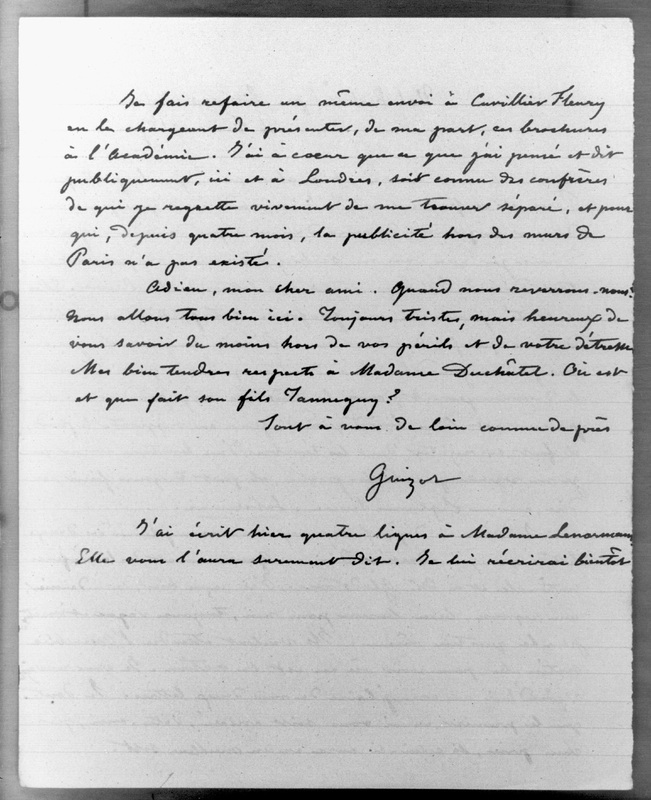 Je fais refaire un même envoi à Cuvillier Fleury
en le chargeant de présenter, de ma part, ces brochures
à l'Académie. J'ai à cœur que ce que j'ai pensé et dit
publiquement, ici et à Londres, soit connu des confrères
de qui je regrette vivement de me trouver séparé, et pour
qui, depuis quatre mois, la publicité hors des murs de
Paris n'a pas existé.
Adieu, mon cher ami. Quand nous reverrons-nous?
Nous allons tous bien ici. Toujours tristes, mais heureux de
vous savoir du moins hors de vos périls et de votre détresse
Mes bien tendres respects à Madame Duchâtel. Où est
et que fait son fils Tanneguy?
Tout à vous de loin comme de près
Guizot
J'ai écrit hier quatre lignes à Madame Lenormant
Elle vous l'aura surement dit. Je lui récrirai bientôt